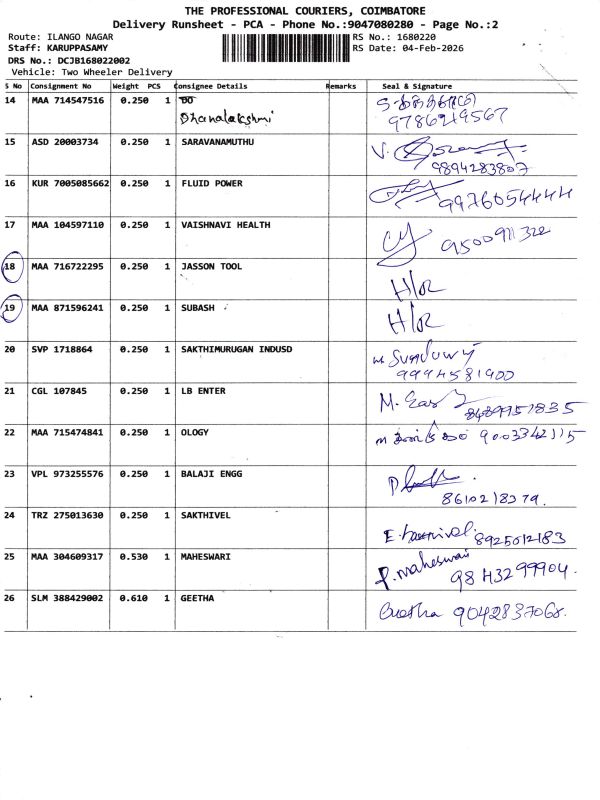 THE PROFESSIONAL COURIERS, COIMBATORE
Delivery Runsheet - PCA - Phone No.:9047080280 - Page No.:2
Route: ILANGO NAGAR
RS No.: 1680220
Staff: KARUPPASAMY
RS Date: 04-Feb-2026
DRS No.: DCJB168022002
Vehicle: Two Wheeler Delivery
S No Consignment No Weight PCS Consignee Details Remarks Seal & Signature
14 MAA 714547516 0.250 1 DO
Dhanalakshmi
9786219567
15 ASD 20003734 0.250 1 SARAVANAMUTHU
9894283807
16 KUR 7005085662 0.250 1 FLUID POWER
9976054444
17 MAA 104597110 0.250 1 VAISHNAVI HEALTH
9500911322
18 MAA 716722295 0.250 1 JASSON TOOL
H/OR
19 MAA 871596241 0.250 1 SUBASH
H/OR
20 SVP 1718864 0.250 1 SAKTHIMURUGAN INDUSD
9994581900
21 CGL 107845 0.250 1 LB ENTER
8489951835
22 MAA 715474841 0.250 1 OLOGY 9003342115
23 VPL 973255576 0.250 1 BALAJI ENGG
8610218379.
24 TRZ 275013630 0.250 1 SAKTHIVEL
8925012183
25 MAA 304609317 0.530 1 MAHESWARI
P. maheswari
9843299904.
26 SLM 388429002 0.610 1 GEETHA
Geetha 9042837068.